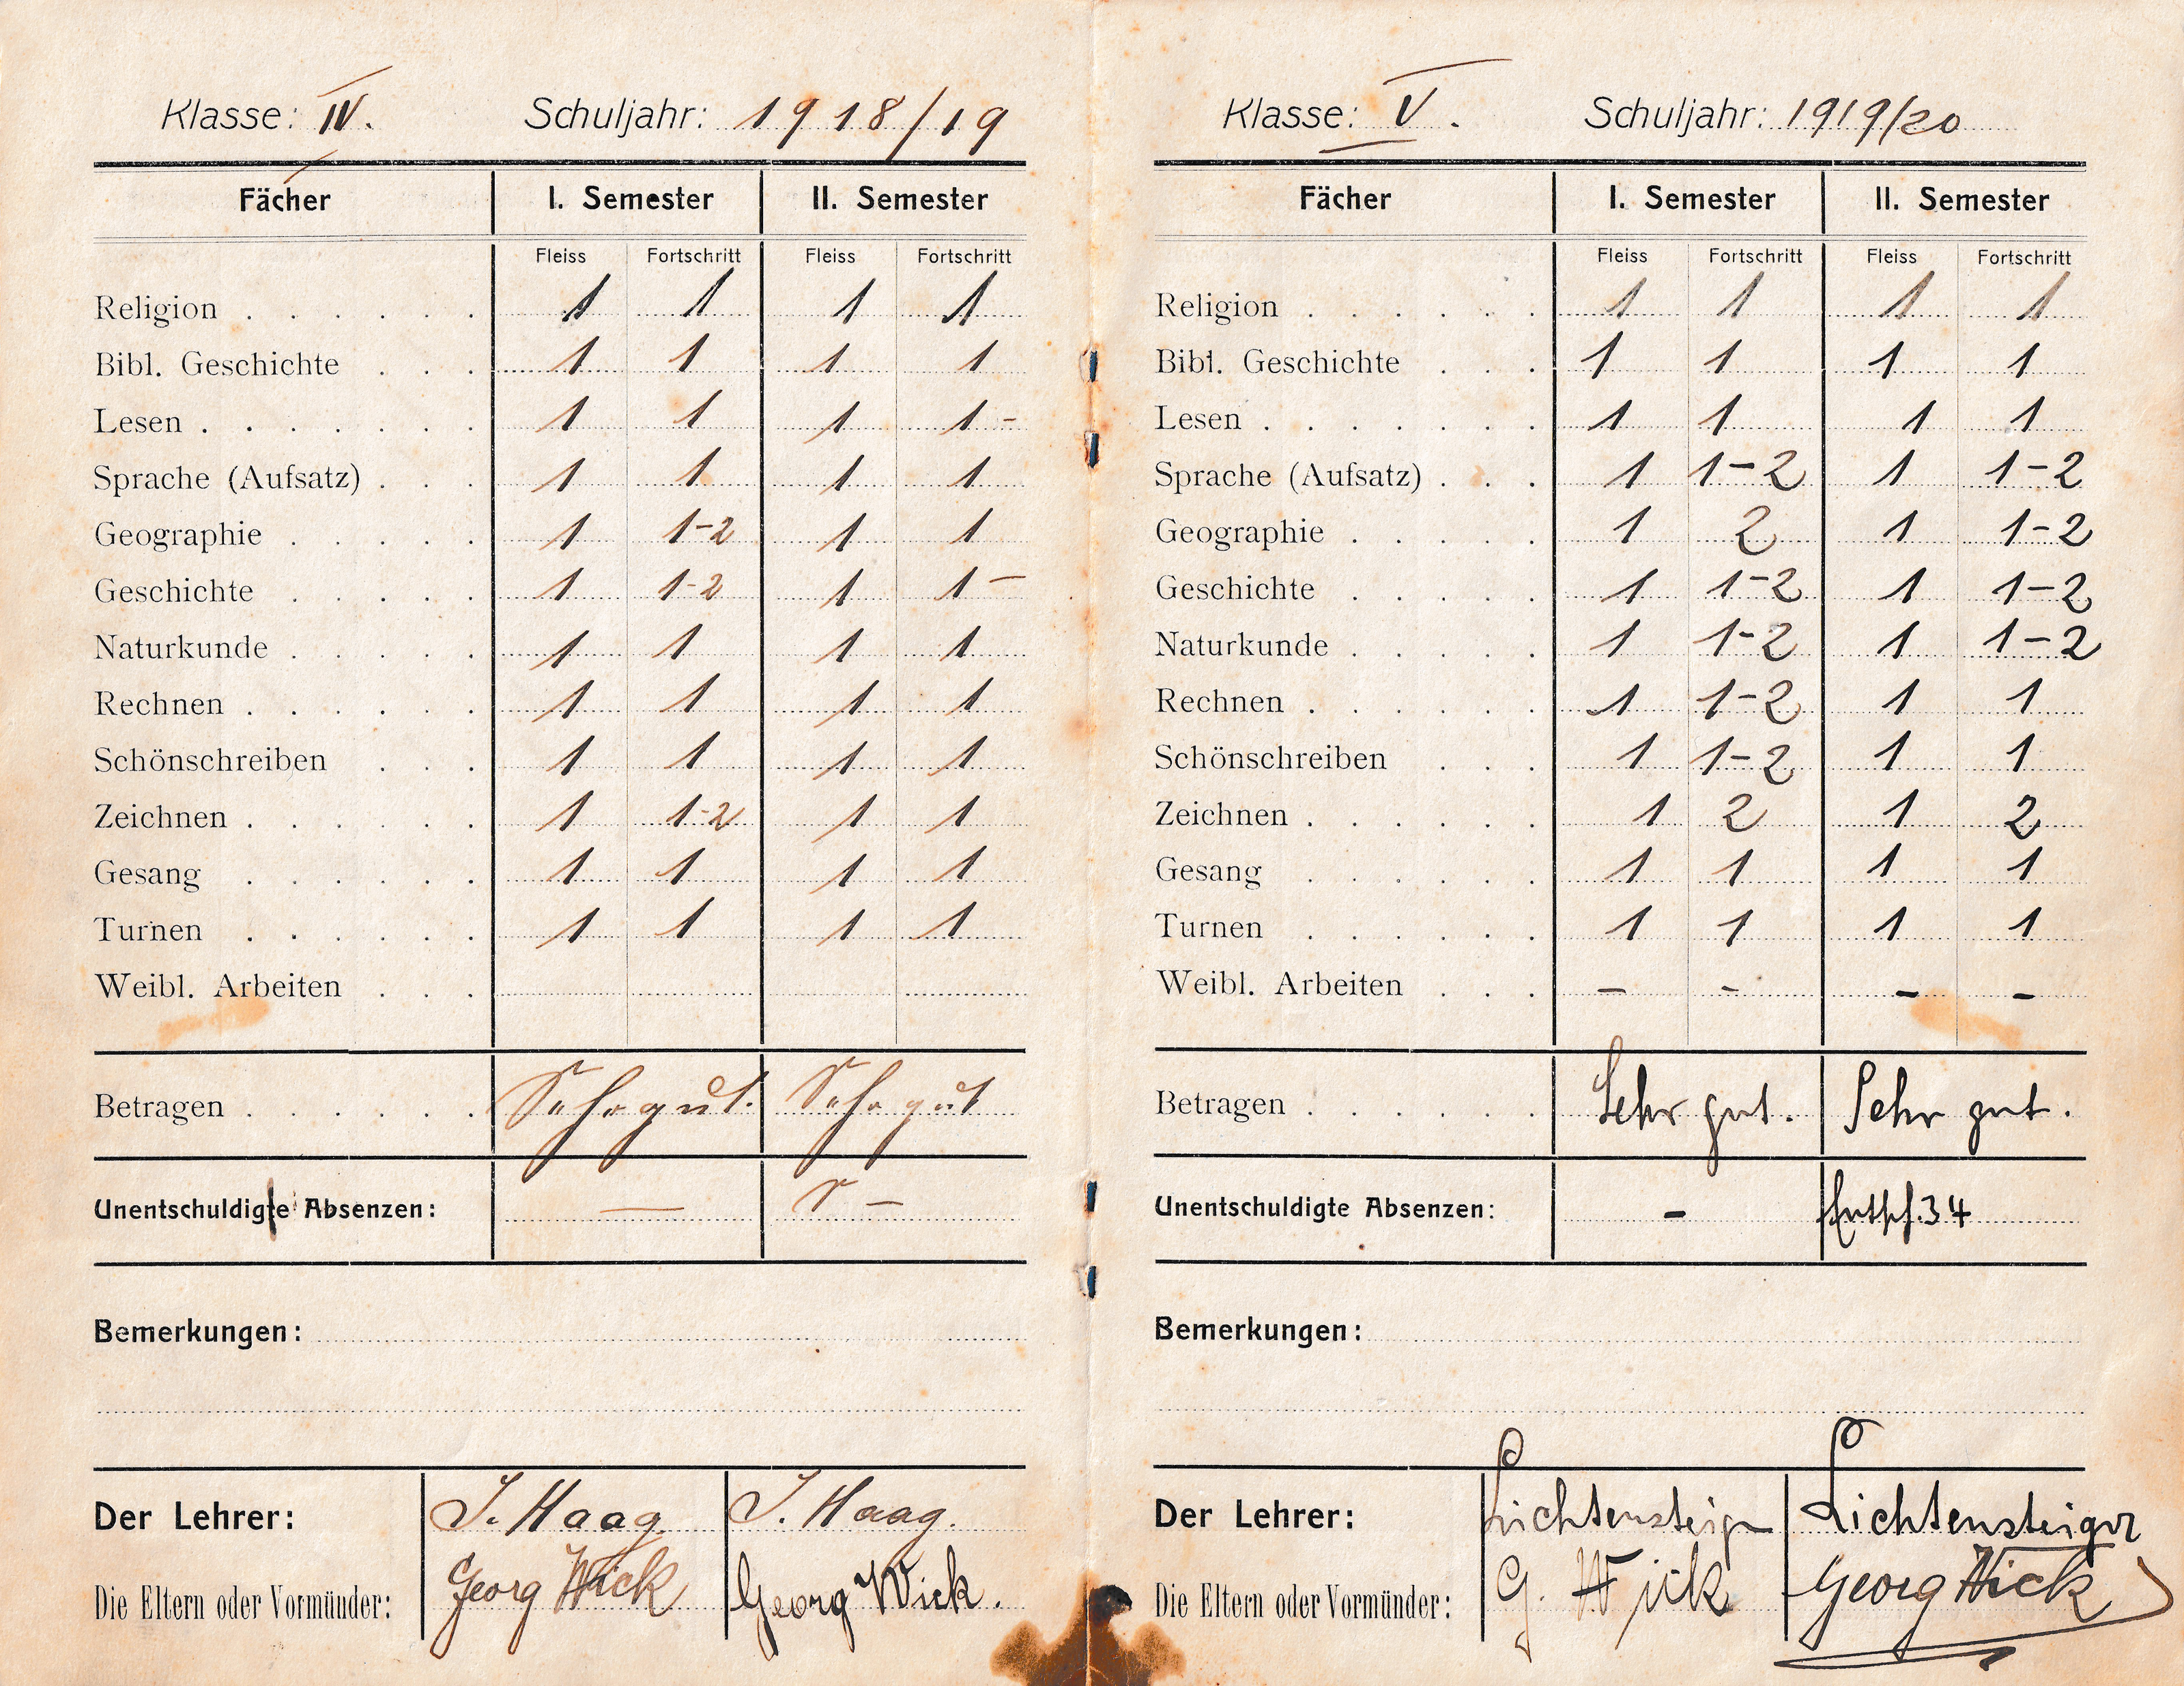 Klasse: IV. Schuljahr: 1918/19
Fächer I. Semester II. Semester
Fleiss Fortschritt Fleiss Fortschritt
Religion 1 1 1 1
Bibl. Geschichte 1 1 1 1
Lesen 1 1 1 1-
Sprache (Aufsatz) 1 1 1 1
Geographie 1 1-2 1 1
Geschichte 1 1-2 1 1-
Naturkunde 1 1 1 1
Rechnen 1 1 1 1
Schönschreiben 1 1 1 1
Zeichnen 1 1-2 1 1
Gesang 1 1 1 1
Turnen 1 1 1 1
Weibl. Arbeiten
Betragen Sehr gut. Sehr gut
Unentschuldigte Absenzen: — —
Bemerkungen:
Der Lehrer: J. Haag. J. Haag.
Die Eltern oder Vormünder: Georg Wick Georg Wick.
Klasse: V. Schuljahr: 1919/20
Fächer I. Semester II. Semester
Fleiss Fortschritt Fleiss Fortschritt
Religion 1 1 1 1
Bibl. Geschichte 1 1 1 1
Lesen 1 1 1 1
Sprache (Aufsatz) 1 1-2 1 1-2
Geographie 1 2 1 1-2
Geschichte 1 1-2 1 1-2
Naturkunde 1 1-2 1 1-2
Rechnen 1 1-2 1 1
Schönschreiben 1 1-2 1 1
Zeichnen 1 2 1 2
Gesang 1 1 1 1
Turnen 1 1 1 1
Weibl. Arbeiten - - - -
Betragen Sehr gut. Sehr gut.
Unentschuldigte Absenzen: - 34
Bemerkungen:
Der Lehrer: Lichtensteiger Lichtensteiger
Die Eltern oder Vormünder: G. Wick Georg Wick